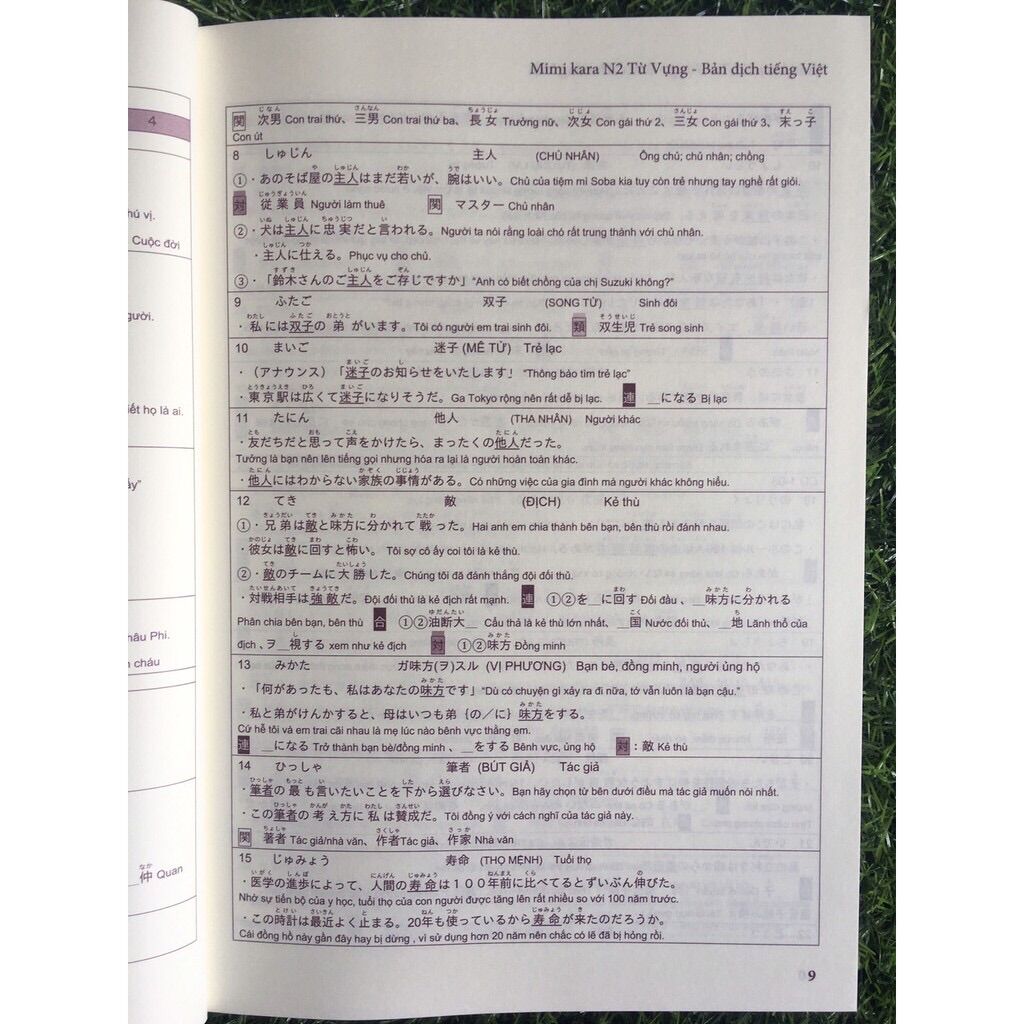 Mimi kara N2 Từ Vựng - Bản dịch tiếng Việt
4
hú vị.
Cuộc đời
gười.
iết họ là ai.
ây"
hâu Phi.
cháu
仲 Quan
なか
じなん さんなん ちょうじょ じじょ さんじょ すえ こ
関 次男 Con trai thứ、三男 Con trai thứ ba、長女 Trưởng nữ、次女 Con gái thứ 2、三女 Con gái thứ 3、末っ子
Con út
8 しゅじん 主人 (CHỦ NHÂN) Ông chủ; chủ nhân; chồng
や しゅじん わか うで
①・あのそば屋の主人はまだ若いが、腕はいい。Chủ của tiệm mì Soba kia tuy còn trẻ nhưng tay nghề rất giỏi.
じゅうぎょういん
対 従業員 Người làm thuê 関 マスター Chủ nhân
いぬ しゅじん ちゅうじつ い
②・犬は主人に忠実だと言われる。Người ta nói rằng loài chó rất trung thành với chủ nhân.
しゅじん つか
・主人に仕える。Phục vụ cho chủ.
すずき しゅじん ぞん
③・「鈴木さんのご主人をご存じですか」"Anh có biết chồng của chị Suzuki không?"
9 ふたご 双子 (SONG TỬ) Sinh đôi
わたし ふたご おとうと そうせいじ
・私には双子の弟がいます。Tôi có người em trai sinh đôi. 類 双生児 Trẻ song sinh
10 まいご 迷子 (MÊ TỬ) Trẻ lạc
まいご し
・（アナウンス）「迷子のお知らせをいたします」"Thông báo tìm trẻ lạc"
とうきょうえき ひろ まいご
・東京駅は広くて迷子になりそうだ。Ga Tokyo rộng nên rất dễ bị lạc. 連 __になる Bị lạc
11 たにん 他人 (THA NHÂN) Người khác
とも おも こえ たにん
・友だちだと思って声をかけたら、まったくの他人だった。
Tưởng là bạn nên lên tiếng gọi nhưng hóa ra lại là người hoàn toàn khác.
たにん かぞく じじょう
・他人にはわからない家族の事情がある。Có những việc của gia đình mà người khác không hiểu.
12 てき 敵 (ĐỊCH) Kẻ thù
きょうだい てき みかた わ たたか
①・兄弟は敵と味方に分かれて戦った。Hai anh em chia thành bên bạn, bên thù rồi đánh nhau.
かのじょ てき まわ こわ
・彼女は敵に回すと怖い。Tôi sợ cô ấy coi tôi là kẻ thù.
てき たいしょう
②・敵のチームに大勝した。Chúng tôi đã đánh thắng đội đối thủ.
たいせんあいて きょうてき まわ みかた わ
・対戦相手は強敵だ。Đội đối thủ là kẻ địch rất mạnh. 連 ①②を__に回す Đối đầu、__味方に分かれる
ゆだんたい こく ち
Phân chia bên bạn, bên thù 合 ①②油断大__ Cẩu thả là kẻ thù lớn nhất、__国 Nước đối thủ、__地 Lãnh thổ của
し みかた
địch、ヲ__視する xem như kẻ địch 対 ①②味方 Đồng minh
13 みかた ガ味方(ヲ)スル (VỊ PHƯƠNG) Bạn bè, đồng minh, người ủng hộ
みかた
・「何があったも、私はあなたの味方です」"Dù có chuyện gì xảy ra đi nữa, tớ vẫn luôn là bạn cậu."
みかた
・私と弟がけんかすると、母はいつも弟｛の／に｝味方をする。
Cứ hễ tôi và em trai cãi nhau là mẹ lúc nào bênh vực thằng em.
連 __になる Trở thành bạn bè/đồng minh、__をする Bênh vực, ủng hộ 対：敵 Kẻ thù
14 ひっしゃ 筆者 (BÚT GIẢ) Tác giả
ひっしゃ もっと い した えら
・筆者の最も言いたいことを下から選びなさい。Bạn hãy chọn từ bên dưới điều mà tác giả muốn nói nhất.
ひっしゃ かんが かた わたし さんせい
・この筆者の考え方に私は賛成だ。Tôi đồng ý với cách nghĩ của tác giả này.
ちょしゃ さくしゃ さっか
関 著者 Tác giả/nhà văn、作者Tác giả、作家 Nhà văn
15 じゅみょう 寿命 (THỌ MỆNH) Tuổi thọ
いがく しんぽ にんげん じゅみょう ねんまえ くら の
・医学の進歩によって、人間の寿命は１００年前に比べてるとずいぶん伸びた。
Nhờ sự tiến bộ của y học, tuổi thọ của con người được tăng lên rất nhiều so với 100 năm trước.
とけい さいきん と ねん つか じゅみょう き
・この時計は最近よく止まる。20年も使っているから寿命が来たのだろうか。
Cái đồng hồ này gần đây hay bị dừng , vì sử dụng hơn 20 năm nên chắc có lẽ đã bị hỏng rồi.
9